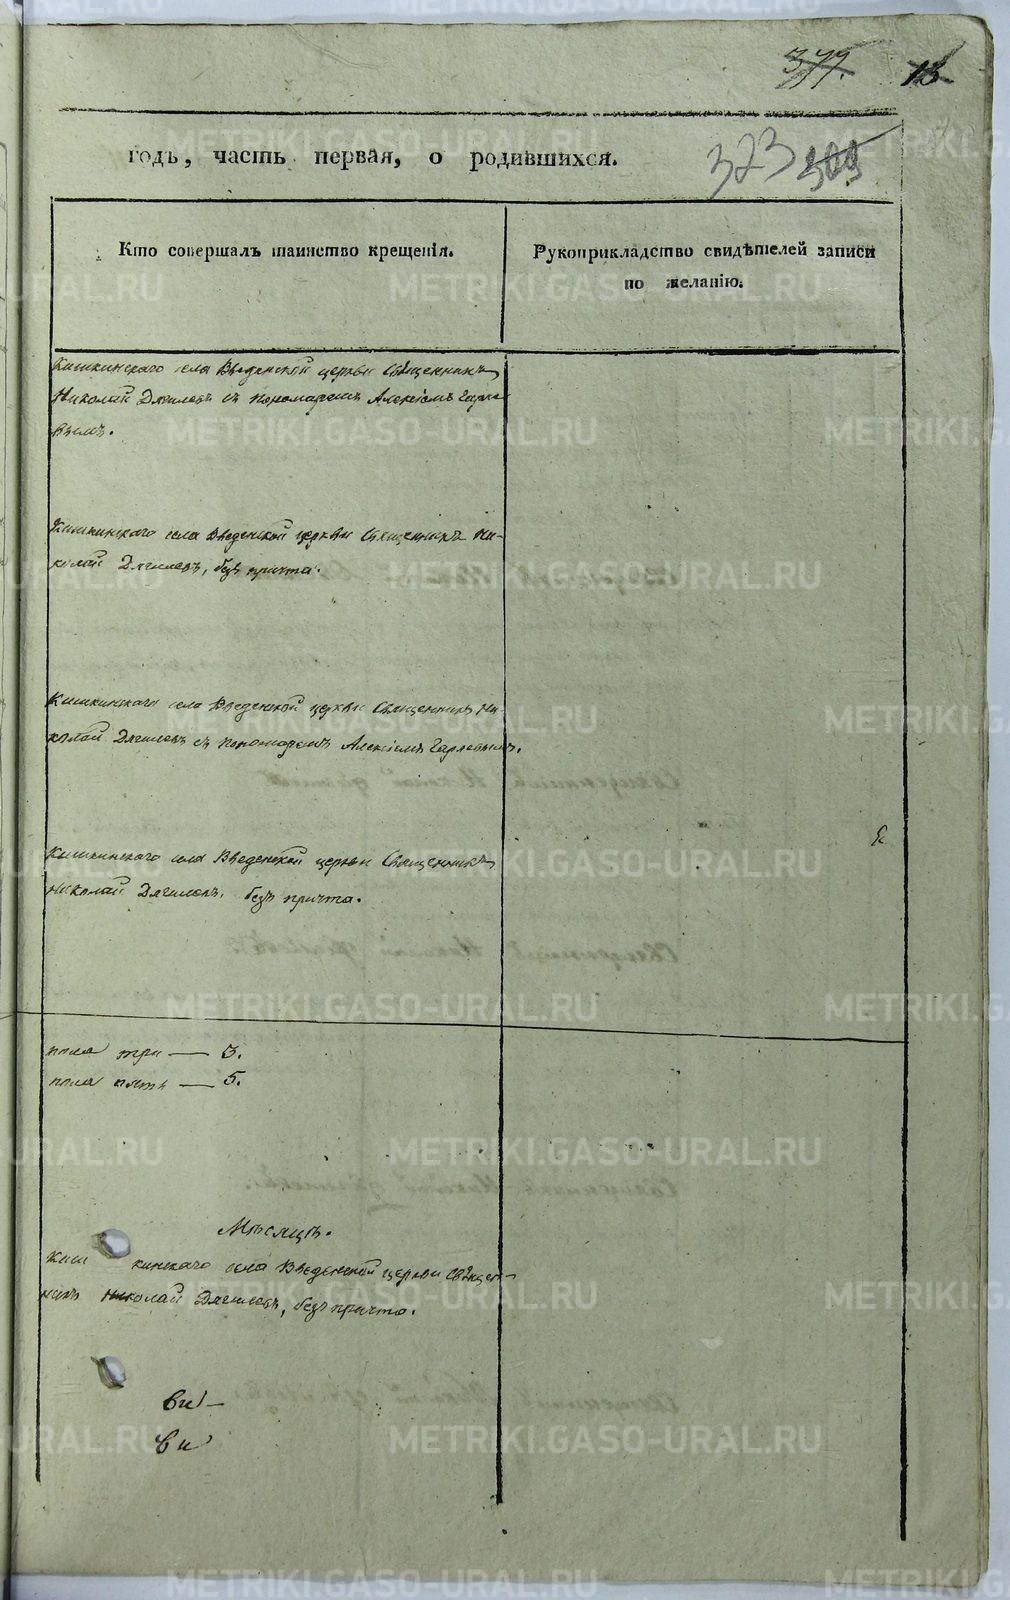 377. 13
годъ, часть первая, о родившихся.
323 309
Кто совершалъ таинство крещенія.
Рукоприкладство свидѣтелей записи
по желанію.
Кишкинскаго села Введенской церкви Священникъ
Николай Дягилевъ съ пономаремъ Алексіемъ Гарле-
вымъ.
Кишкинскаго села Введенской церкви Священникъ Ни-
колай Дягилевъ, безъ причта.
Кишкинскаго села Введенской церкви Священникъ Ни-
колай Дягилевъ съ пономаремъ Алексіемъ Гарлевымъ.
Кишкинскаго села Введенской церкви Священникъ
Николай Дягилевъ, безъ причта.
пола три — 3.
пола пять — 5.
Мѣсяцъ.
Кишкинскаго села Введенской церкви Священ-
никъ Николай Дягилевъ, безъ причта.
METRIKI.GASO-URAL.RU